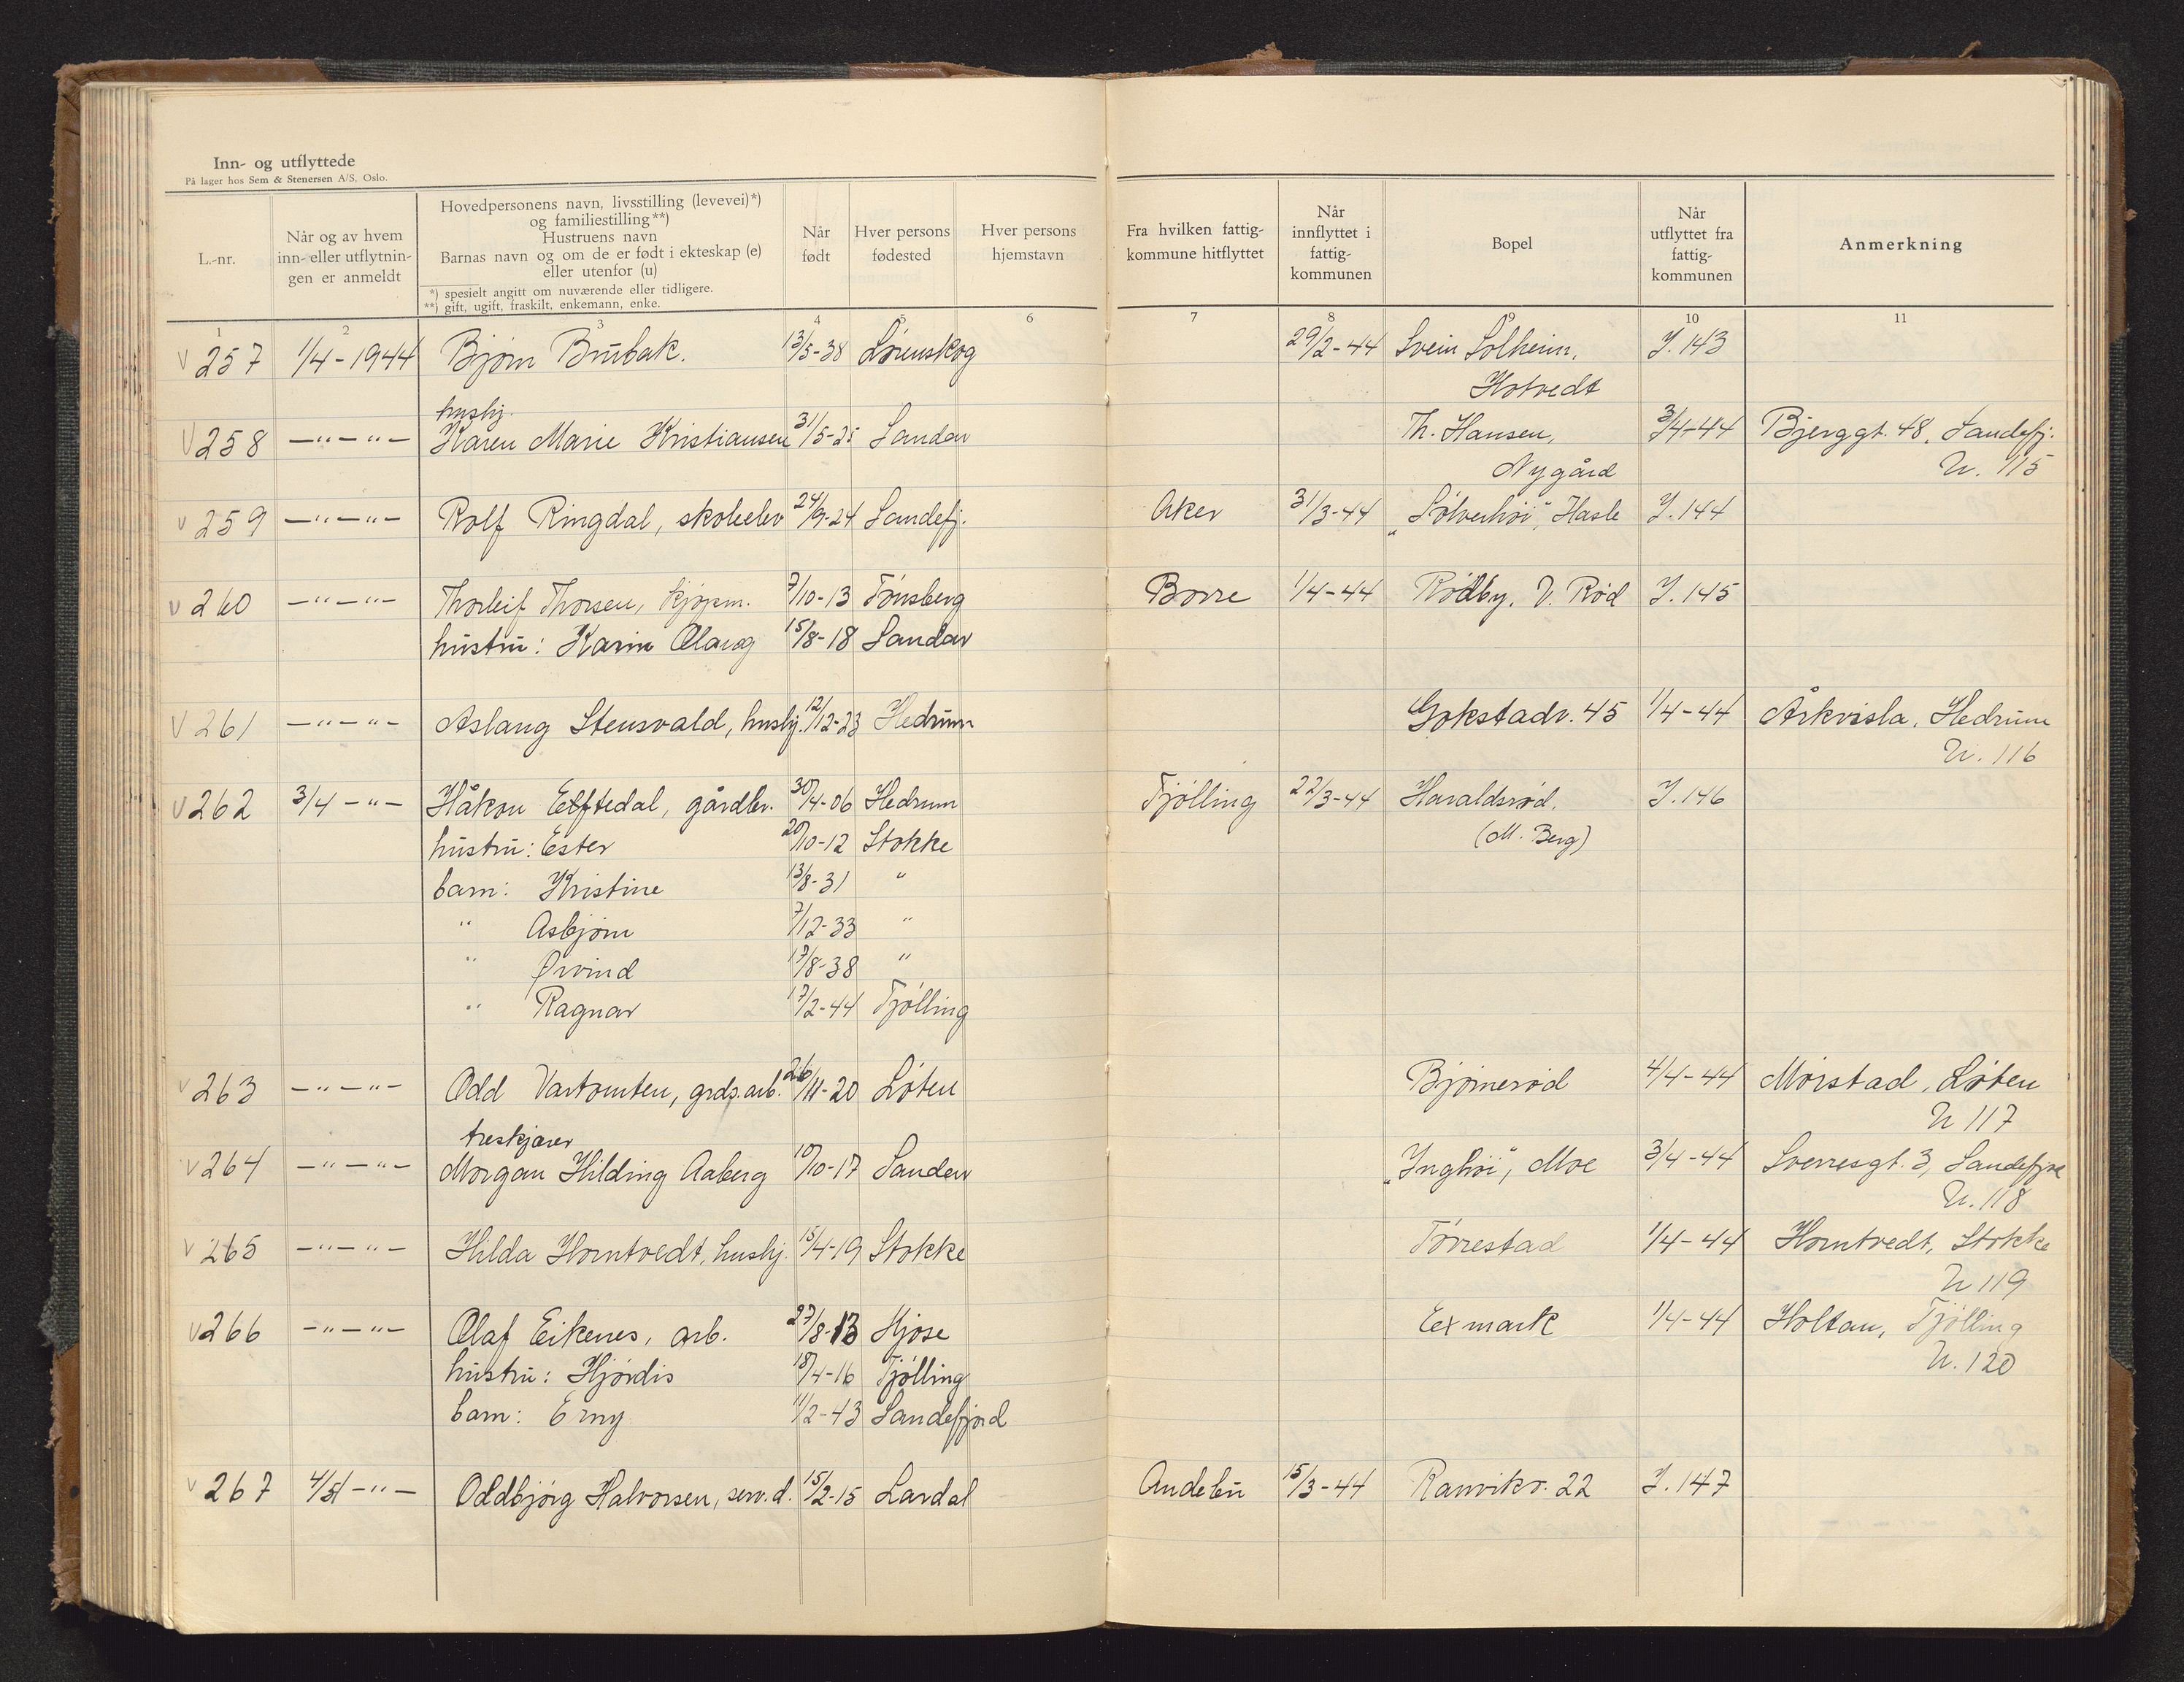 Inn- og utflyttede
På lager hos Sem & Stenersen A/S, Oslo.
L.-nr.
Når og av hvem
inn- eller utflytnin-
gen er anmeldt
Hovedpersonens navn, livsstilling (levevei)*)
og familiestilling**)
Hustruens navn
Barnas navn og om de er født i ekteskap (e)
eller utenfor (u)
*) spesielt angitt om nuværende eller tidligere.
**) gift, ugift, fraskilt, enkemann, enke.
Når
født
Hver persons
fødested
Hver persons
hjemstavn
Fra hvilken fattig-
kommune hitflyttet
Når
innflyttet i
fattig-
kommunen
Bopel
Når
utflyttet fra
fattig-
kommunen
Anmerkning
1 2 3 4 5 6 7 8 9 10 11
V 257 1/4-1944 Bjørn Brubak. 13/5-38 Lørenskog 29/2-44 Svein Solheim, J. 143
Hotvedt
hushj.
V 258 -"-"- Karen Marie Kristiansen 31/5-25 Sandar Th. Hansen, 3/4-44 Bjerggt. 48, Sandefj.
Nygård U. 115
V 259 -"-"- Rolf Ringdal, skoleelev 24/9-24 Sandefj. Aker 31/3-44 „Sølverhøi", Hasle J. 144
V 260 -"-"- Thorleif Thorsen, kjøpm. 7/10-13 Tønsberg Borre 1/4-44 Rødby, V. Rød J. 145
hustru: Karin Olaug 15/8-18 Sandar
V 261 -"-"- Aslaug Stensvald, hushj. 12/12-23 Hedrum Gokstadv. 45 1/4-44 Årkvisla, Hedrum
U. 116
V 262 3/4 -"- Håkon Eftedal, gårdbr. 30/4-06 Hedrum Tjølling 22/3-44 Haraldsrød. J. 146
hustru: Ester 20/10-12 Stokke (M. Berg)
barn: Kristine 13/8-31 "
" Asbjørn 7/12-33 "
" Øivind 17/8-38 "
" Ragnar 17/2-44 Tjølling
V 263 -"-"- Odd Vartomten, grds.arb. 26/11-20 Løten Bjørnerød 4/4-44 Morstad, Løten
U 117
treskjærer
V 264 -"-"- Morgan Hilding Aaberg 10/10-17 Sandar „Inghøi", Moe 3/4-44 Sverresgt. 3, Sandefjord
U. 118
V 265 -"-"- Hilda Horntvedt, hushj. 15/4-19 Stokke Tørrestad 1/4-44 Horntvedt, Stokke
U 119
V 266 -"-"- Olaf Eikenes, arb. 27/8-13 Hjøse Eexmark 1/4-44 Holtan, Tjølling
U. 120
hustru: Hjørdis 18/4-16 Tjølling
barn: Erny 11/2-43 Sandefjord
V 267 4/4 -"- Oddbjørg Halvorsen, serv.d. 15/2-15 Lardal Andebu 15/3-44 Ranvikv. 22 J. 147